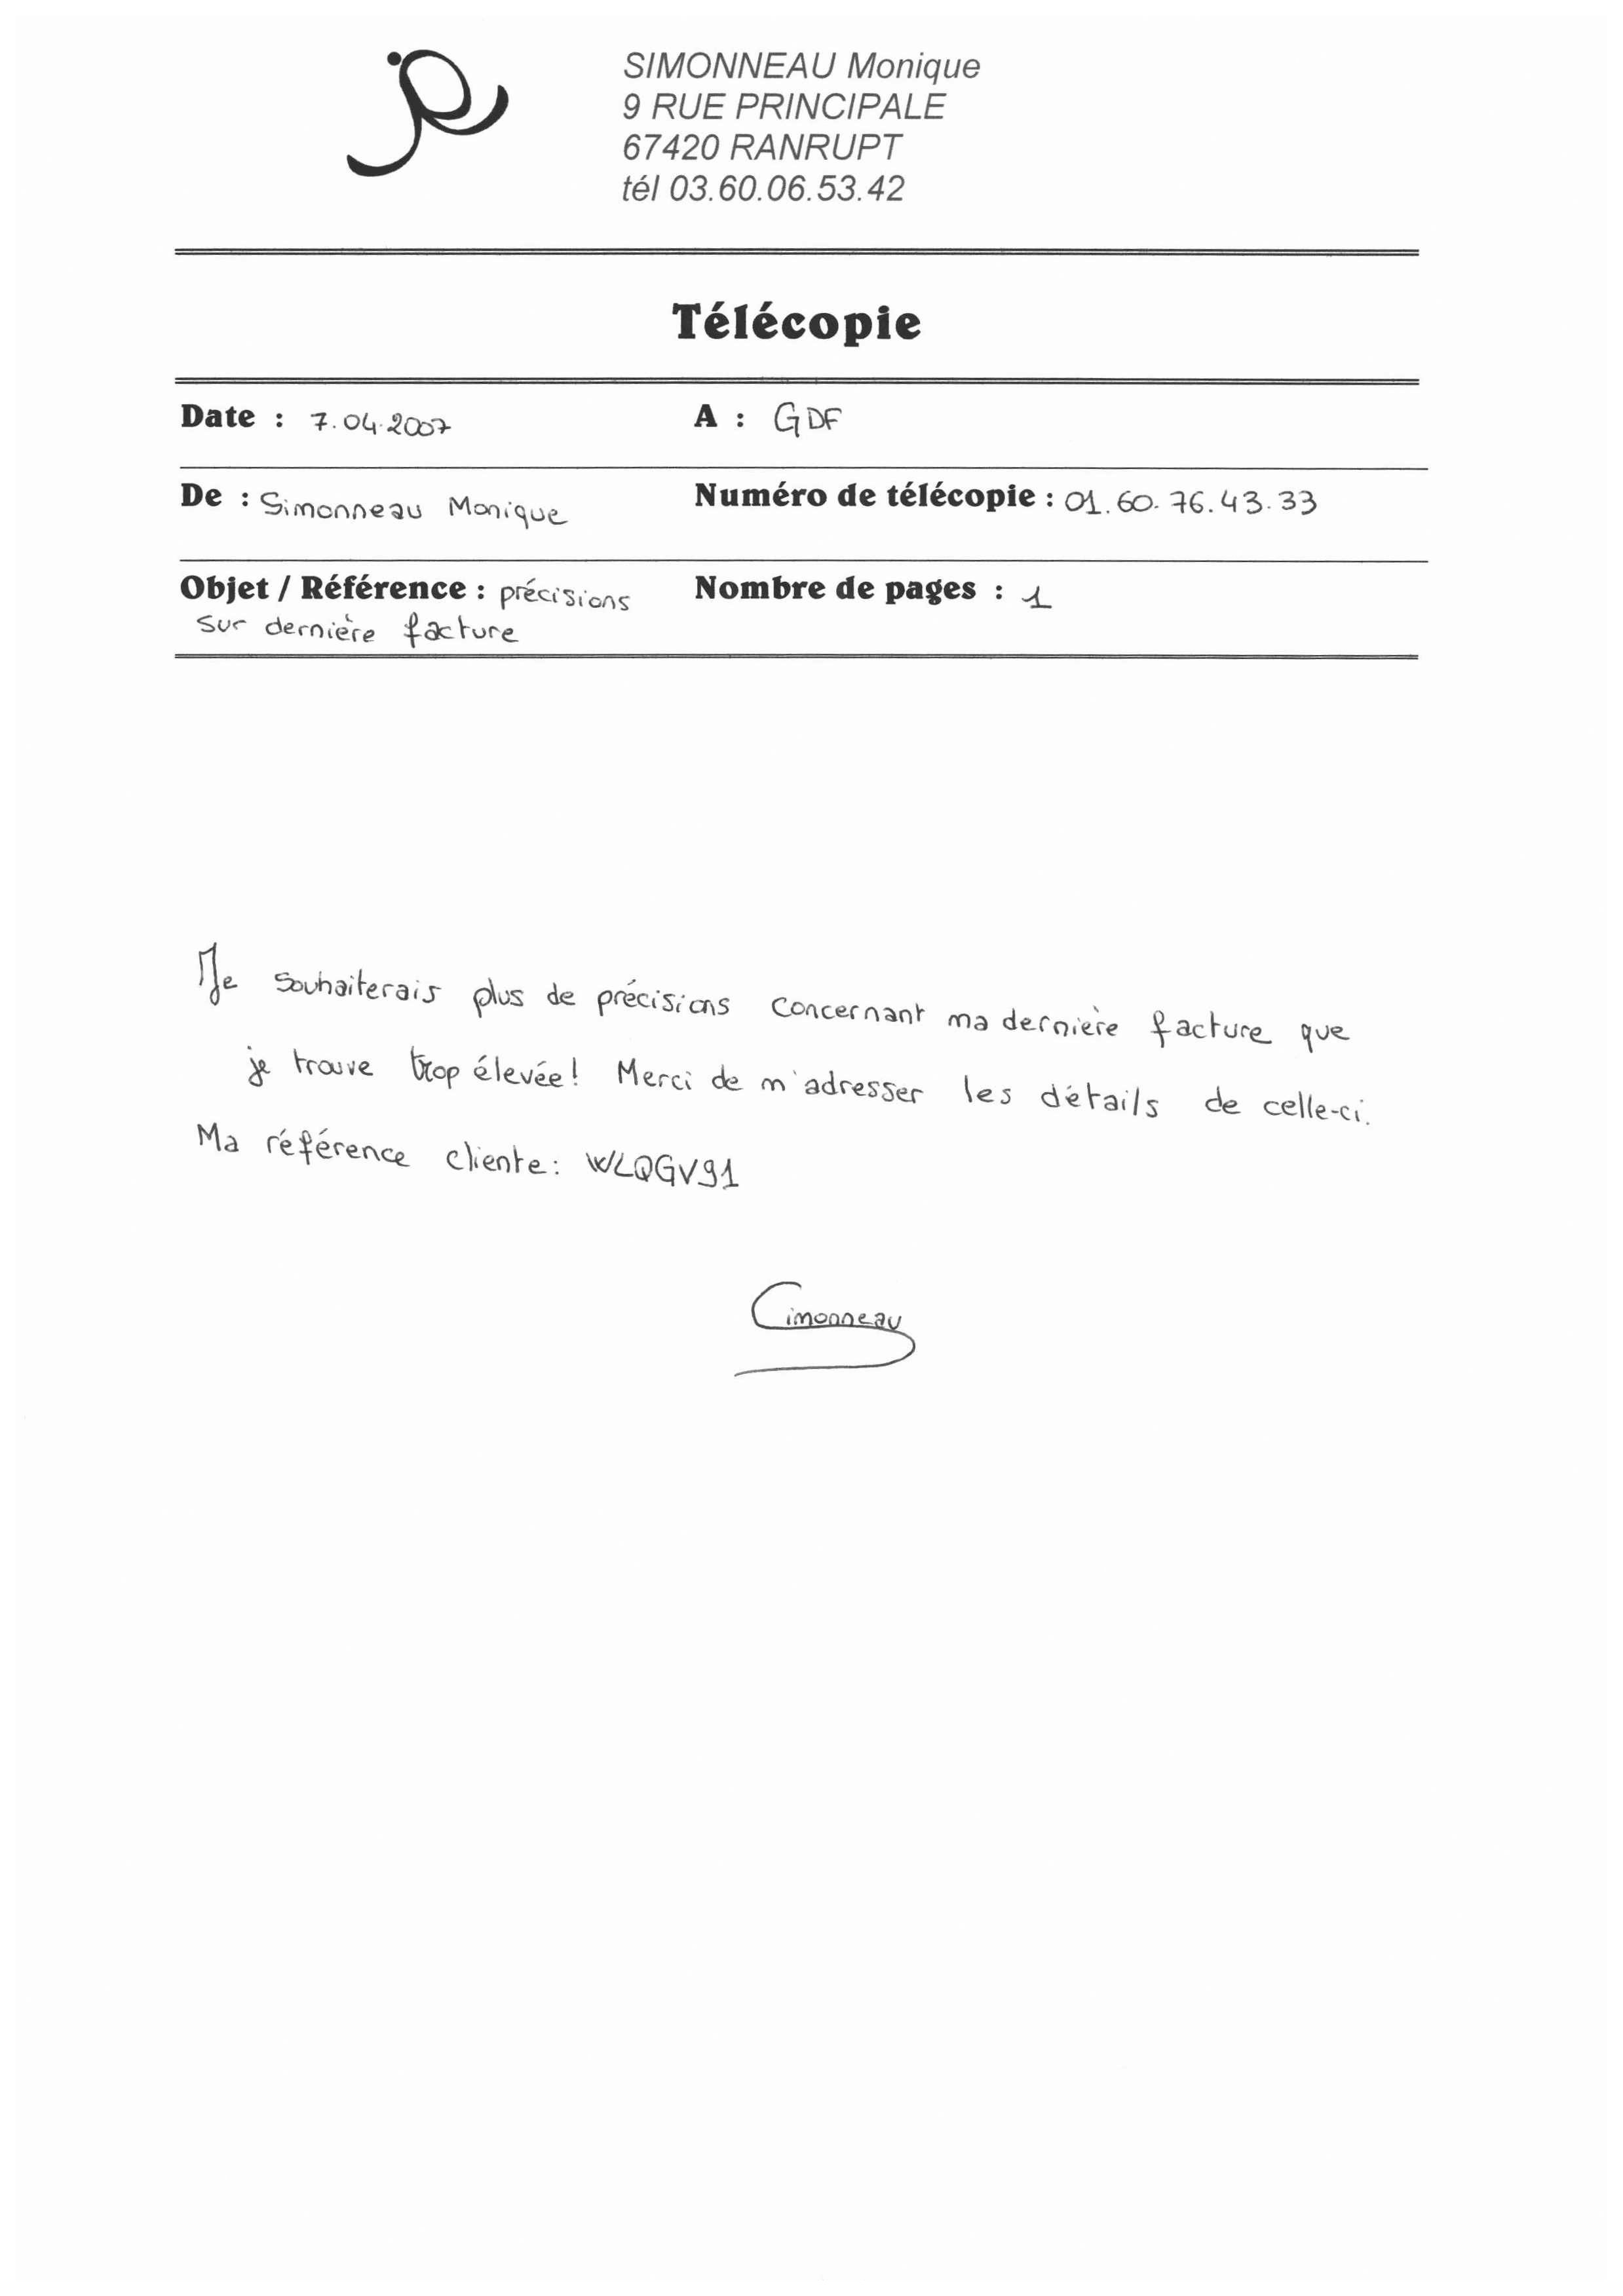 SIMONNEAU Monique
9 RUE PRINCIPALE
67420 RANRUPT
tél 03.60.06.53.42
Télécopie
Date : 7.04.2007 A : GDF
De : Simonneau Monique Numéro de télécopie : 01.60.76.43.33
Objet / Référence : précisions Nombre de pages : 1
sur dernière facture
Je souhaiterais plus de précisions concernant ma dernière facture que
je trouve trop élevée! Merci de m'adresser les détails de celle-ci.
Ma référence cliente: WLQGV91
Simonneau